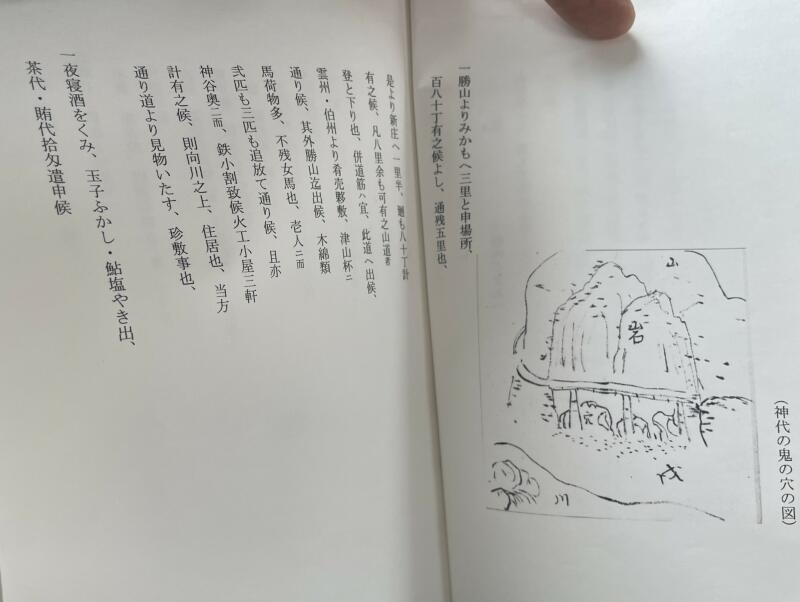 (神代の鬼の穴の図)
山
岩
川
一勝山よりみかもへ三里と申場所、
百八十丁有之候よし、通残五里也、
是より新庄へ一里半、廻も八十丁計
有之候、凡八里余も可有之山道者
登と下り也、併道筋ハ宜、此道へ出候、
雲州・伯州より肴売夥敷、津山杯ニ
通り候、其外勝山迄出候、木綿類
馬荷物多、不残女馬也、壱人ニ而
弐匹も三匹も追放て通り候、且亦
神谷奥ニ而、鉄小割致候火工小屋三軒
計有之候、則向川之上、住居也、当方
通り道より見物いたす、珍敷事也、
一夜寝酒をくみ、玉子ふかし・鮎塩やき出、
茶代・賄代拾匁遣申候